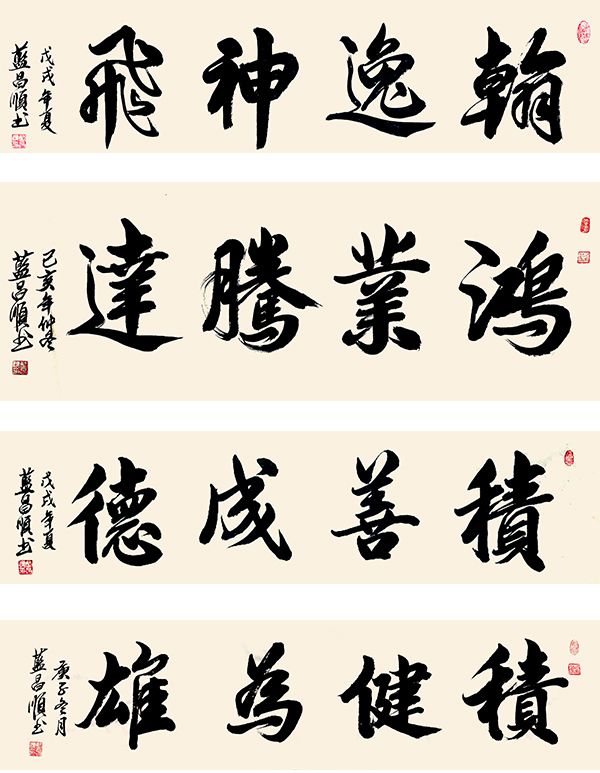 翰逸神飛
戊戌年夏
藍昌順书
鴻業騰達
己亥年仲冬
藍昌順书
積善成德
戊戌年夏
藍昌順书
積健為雄
庚子冬月
藍昌順书